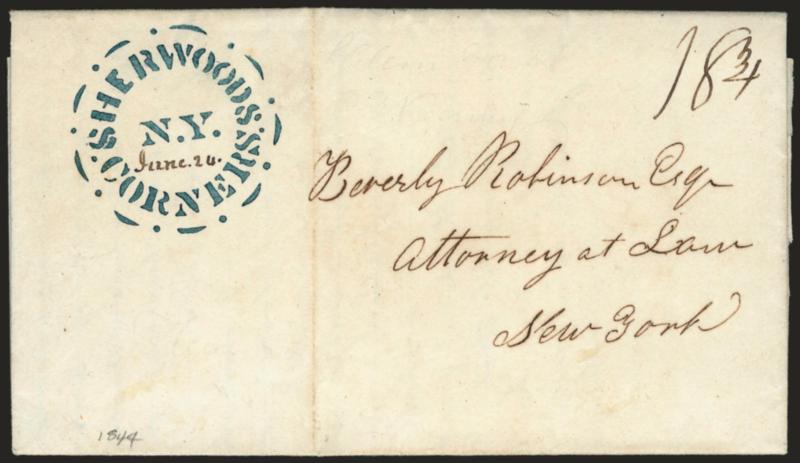 SHERWOODS. CORNERS.
N.Y.
June. 24.
18 3/4
Beverly Robinson Esqr
Attorney at Law
New York
1844